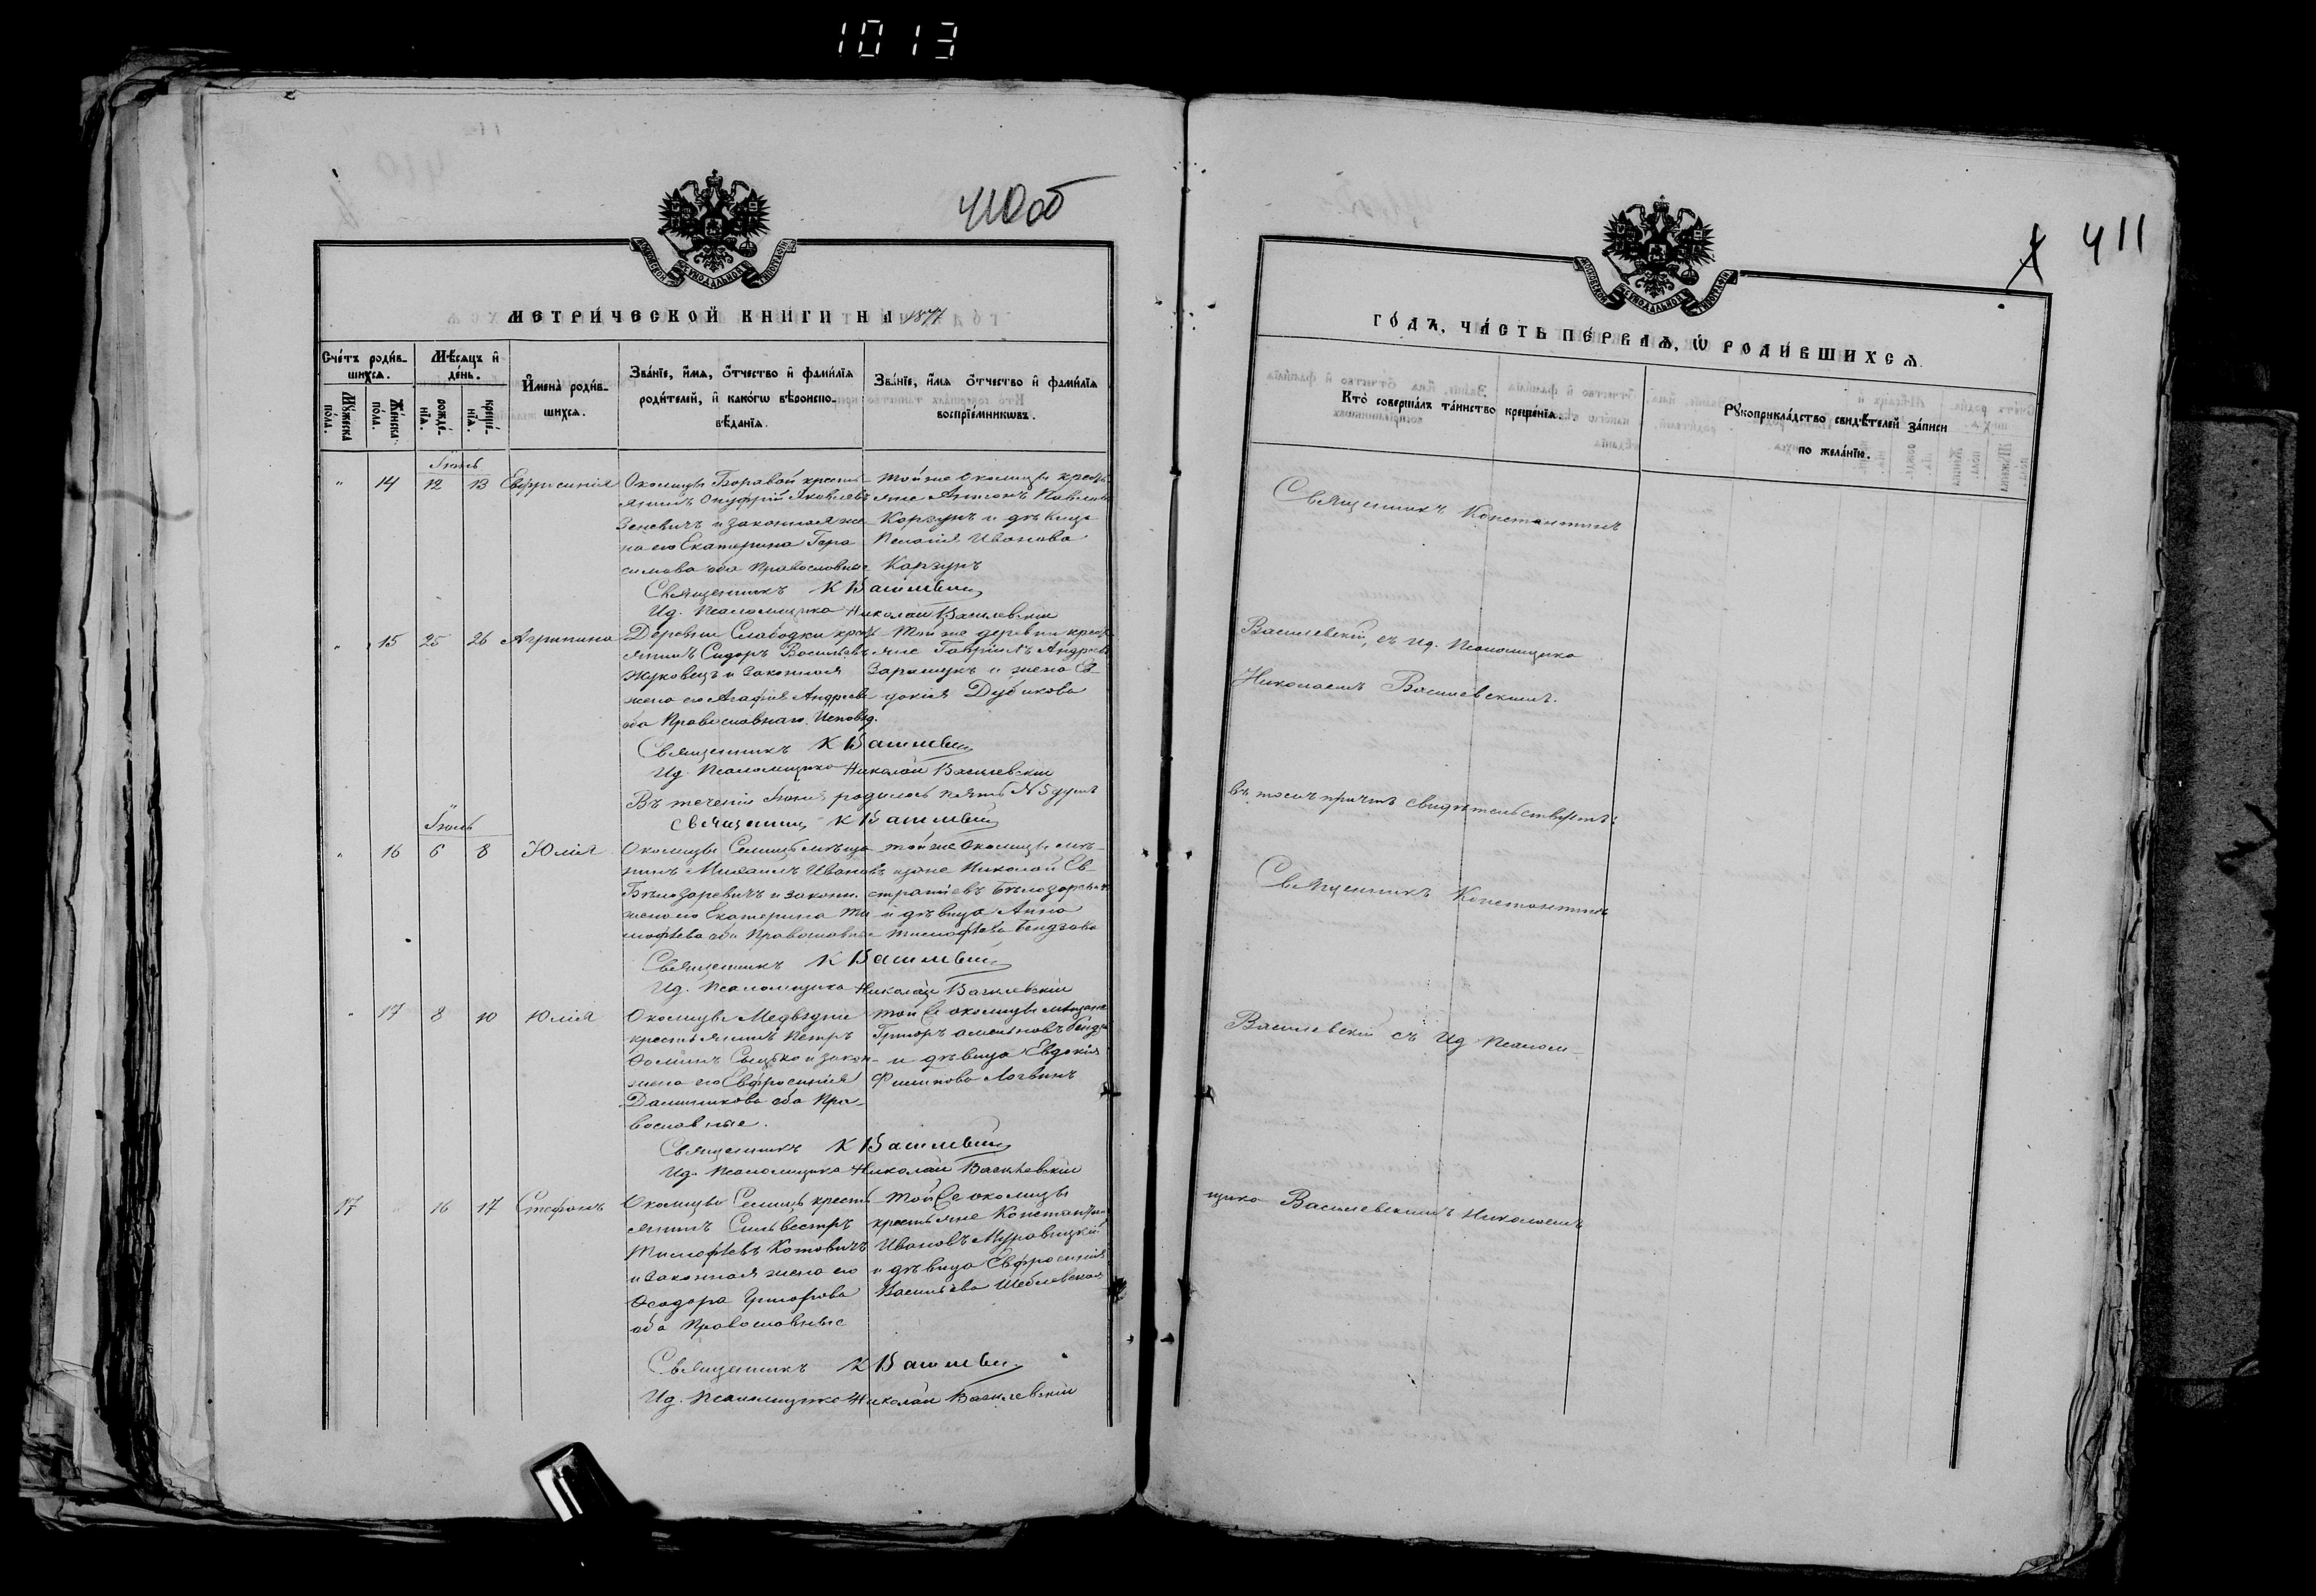 1013
410 об
МОСКОВСКОЙ СѴНОДАЛЬНОЙ ТИПОГРАФІИ
МЕТРИ́ЧЕСКОЙ КНИ́ГИ НА 1877
Сче́тъ роди́в-
шихсѧ.
Мѣ́сѧцъ и҆
де́нь.
Мꙋ́жеска
по́ла.
Же́нска
по́ла.
рожде́-
нїѧ.
креще́-
нїѧ.
И҆мена̀ роди́в-
шихсѧ.
Зва́нїе, и҆́мѧ, ѻ҆́тчество и҆ фами́лїѧ
роди́телей, и҆ како́гѡ вѣроиспо-
вѣ́данїѧ.
Зва́нїе, и҆́мѧ ѻ҆́тчество и҆ фами́лїѧ
воспрїе́мникѡвъ.
Іюнь
" 14 12 13 Евфросинія
Околицы Боровой кресть-
янинъ Онуфрій Яковлевъ
Зеневичъ и законная же-
на его Екатерина Гера-
симова оба Православные
Той же околицы кресть-
яне Антонъ Павловъ
Корзунъ и дѣвица
Пелагія Иванова
Корзунъ
Священникъ К Василевскій
Ид. Псаломщика Николай Василевскій
" 15 25 26 Агрипина
Деревни Слабодки крест-
янинъ Сидоръ Васильевъ
Жуковецъ и законная
жена его Агафія Андреева
оба Православнаго Исповѣд.
Той же деревни крест-
яне Гавріилъ Андреевъ
и жена Ев-
докія
Священникъ К Василевскій
Ид. Псаломщика Николай Василевскій
Въ теченіи Іюня родилось пять N 5 душъ
Священникъ К Василевскій
Іюль
" 16 6 8 Юлія
Околицы Селищъ мѣща-
нинъ Михаилъ Ивановъ
Бѣлозаревичъ и законн.
жена его Екатерина Ти-
мофѣева оба Православные
Той же Околицы мѣ-
щане Николай Ев-
стратіевъ Бѣлозаревичъ
и дѣвица Анна
Тимофѣева
Священникъ К Василевскій
Ид. Псаломщика Николай Василевскій
" 17 8 10 Юлія
Околицы Медвѣдни
крестьянинъ Петръ
Ѳоминъ и закон-
жена его Евфросинія
оба Пра-
вославные.
Той же околицы мѣщане
и дѣвица Евдокія
Филипова Логвинъ
Священникъ К Василевскій
Ид. Псаломщика Николай Василевскій
17 " 16 17 Стефанъ
Околицы Селищъ кресть-
янинъ Сильвестръ
Тимофѣевъ Котовичъ
и законная жена его
Ѳеодора Григорьева
оба Православные
Той же околицы
крестьяне Константинъ
Ивановъ
и дѣвица Евфросинія
Васильева
Священникъ К Василевскій
Ид. Псаломщика Николай Василевскій
411
МОСКОВСКОЙ СѴНОДАЛЬНОЙ ТИПОГРАФІИ
ГО́ДЪ, ЧА́СТЬ ПЕ́РВАѦ, Ѡ҆ РОДИ́ВШИХСѦ.
Кто̀ соверша́лъ та́инство креще́нїѧ.
Рꙋкоприкла́дство свидѣ́телей за́писи
по жела́нїю.
Священникъ Константинъ
Василевскій, съ Ид. Псаломщика
Николаемъ Василевскимъ.
въ томъ причтъ свидѣтельствуетъ:
Священникъ Константинъ
Василевскій съ Ид Псалом-
щика Василевскимъ Николаемъ